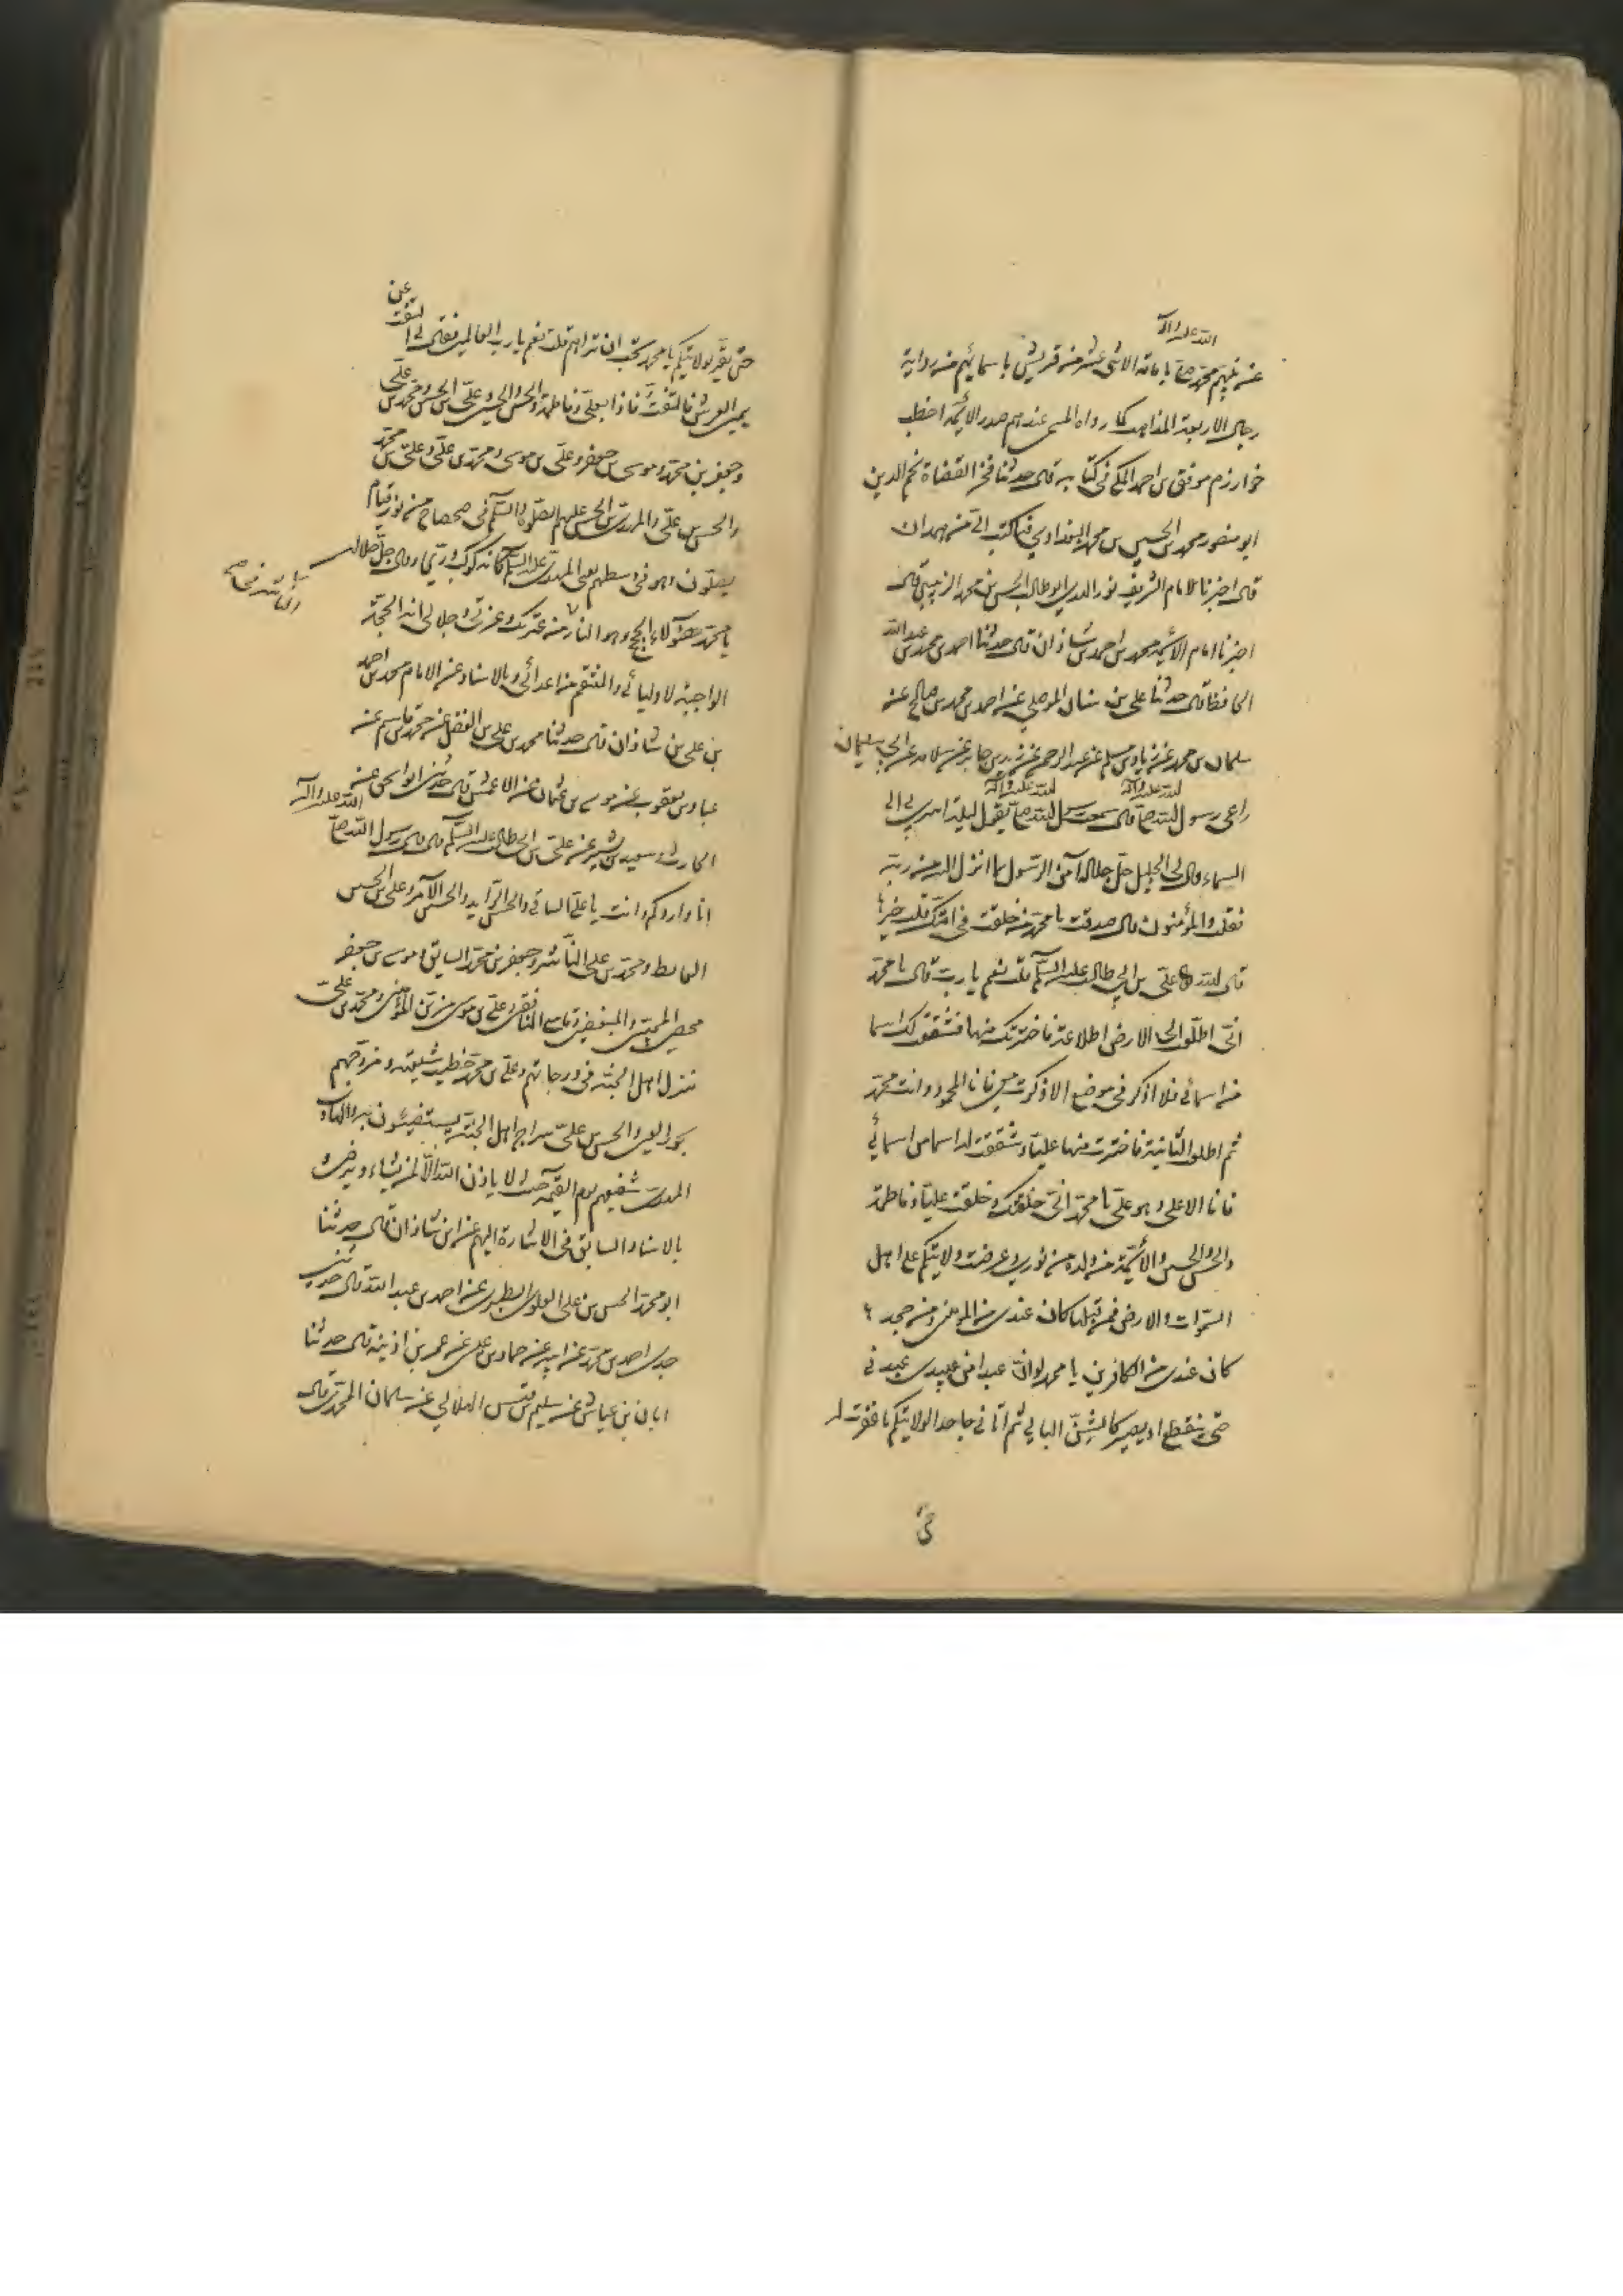 عن نبيهم محمد صلى الله عليه وآله بامامة الاثنى عشر من قريش باسمائهم من رواية
رجال الاربعة المذاهب كما رواه المسمى عندهم صدر الائمة اخطب
خوارزم موفق بن احمد المكي في كتابه قال حدثنا فخر القضاة نجم الدين
ابو منصور محمد بن الحسين بن محمد البغدادي فيما كتب الي من همدان
قال اخبرنا الامام الشريف نور الهدى ابو طالب الحسن بن محمد الزينبي قال
اخبرنا امام الائمة محمد بن احمد بن شاذان قال حدثنا احمد بن محمد بن عبد الله
الحافظ قال حدثنا على بن سنان الموصلي عن احمد بن محمد بن صالح عن
سلمان بن محمد عن زياد بن مسلم عن عبد الرحمن عن زيد بن جابر عن سلامه عن ابي سليمان
راعى رسول الله صلى الله عليه وآله قال سمعت رسول الله صلى الله عليه وآله يقول ليلة اسري بي الى
السماء قال لى الجليل جل جلاله آمن الرسول بما انزل اليه من ربه
فقلت والمؤمنون قال صدقت يا محمد من خلفت في امتك قلت خيرها
قال الله على بن ابي طالب عليه السلم قلت نعم يا رب قال يا محمد
انى اطلعت الى الارض اطلاعة فاخترتك منها فشققت لك اسما
من اسمائي فلا اذكر في موضع الا ذكرت معي فانا المحمود وانت محمد
ثم اطلعت الثانية فاخترت منها عليا وشققت له اسما من اسمائي
فانا الاعلى وهو على يا محمد انى خلقتك وخلقت عليا وفاطمة
والحسن والحسين والائمة من ولده من نوري وعرضت ولايتكم على اهل
السموات والارض فمن قبلها كان عندى من المومنين ومن جحدها
كان عندى من الكافرين يا محمد لو ان عبدا من عبيدى عبدنى
حتى ينقطع او يصير كالشن البالي ثم اتانى جاحدا لولايتكم ما غفرت له
حتى
حتى يقر بولايتكم يا محمد تحب ان تراهم قلت نعم يا رب العالمين فقال لى التفت عن
يمين العرش فالتفت فاذا بعلى وفاطمة والحسن والحسين وعلى بن الحسين ومحمد بن على
وجعفر بن محمد وموسى بن جعفر وعلى بن موسى ومحمد بن على وعلى بن محمد
والحسن بن على والمهدى بن الحسن عليهم الصلوة والسلم في ضحضاح من نور قيام
يصلون وهو في وسطهم يعنى المهدى عليه السلم كانه كوكب درى وقال جل جلاله
يا محمد هؤلاء الحجج وهو الثار من عترتك وعزتي وجلالى انه الحجة
الواجبة لاوليائي والمنتقم من اعدائي وبالاسناد عن الامام محمد بن احمد
بن على بن شاذان قال حدثنا محمد بن على بن الفضل عن محمد بن قاسم عن
عباد بن يعقوب عن موسى بن عثمان عن الاعمش قال حدثنى ابو اسحق عن
الحارث وسعيد بن بشير عن على بن ابي طالب عليه السلم قال قال رسول الله صلى الله عليه وآله
انا واردكم وانت يا على الساقي والحسن الرايد والحسين الآمر وعلى بن الحسين
الفارط ومحمد بن على الناشر وجعفر بن محمد السايق وموسى بن جعفر
محصى المحبين والمبغضين وقامع المنافقين وعلى بن موسى مزين المؤمنين ومحمد بن على
منزل اهل الجنة في درجاتهم وعلى بن محمد خطيب شيعته ومزوجهم
بحور العين والحسن بن على سراج اهل الجنة يستضيئون به والهادى
المهدى شفيعهم يوم القيمة حيث لا ياذن الله الا لمن يشاء ويرضى و
بالاسناد السابق في الاشارة اليهم عن ابن شاذان قال حدثنا
ابو محمد الحسن بن على العلوى الطبرى عن احمد بن عبد الله قال حدثنى
جدى احمد بن محمد عن ابيه عن حماد بن عيسى عن عمر بن اذينه قال حدثنا
ابان بن عياش عن سليم بن قيس الهلالي عن سلمان المحمدى قال